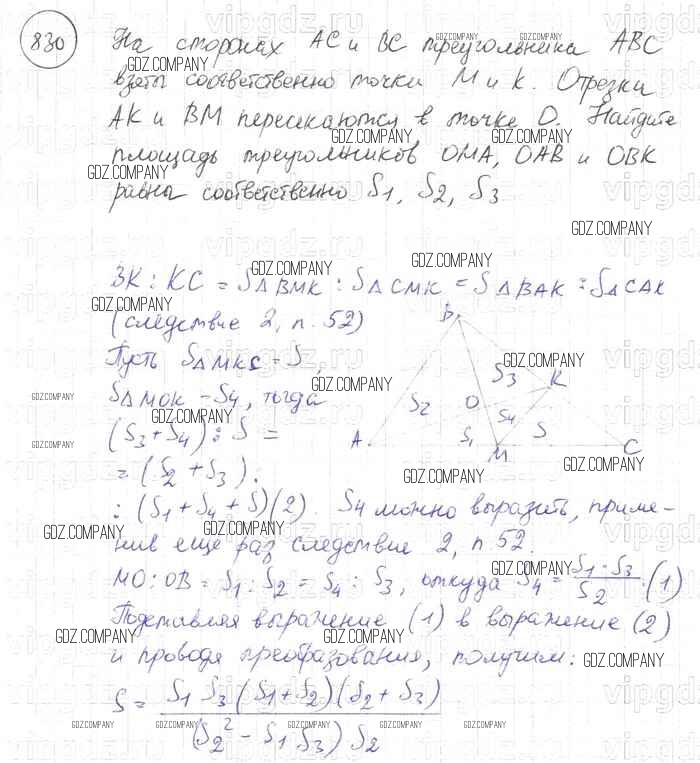 830
На сторонах AC и BC треугольника ABC
взяты соответственно точки M и K. Отрезки
AK и BM пересекаются в точке O. Найдите
площадь треугольников OMA, OAB и OBK
равна соответственно S1, S2, S3
BK : KC = S△BMK : S△CMK = S△BAK : S△CAK
(следствие 2, п. 52)
Пусть S△MKC = S,
S△MOK = S4, тогда
(S3 + S4) : S =
= (S2 + S3) :
: (S1 + S4 + S) (2). S4 можно выразить, приме-
нив еще раз следствие 2, п. 52.
MO : OB = S1 : S2 = S4 : S3, откуда S4 = S1 · S3 / S2 (1)
Подставляя выражение (1) в выражение (2)
и проводя преобразования, получим:
S = S1 S3 (S1 + S2)(S2 + S3) / (S2² - S1 S3) S2
B
S3
K
S2
O
S4
A
S1
M
S
C
GDZ.COMPANY
vipgdz.ru